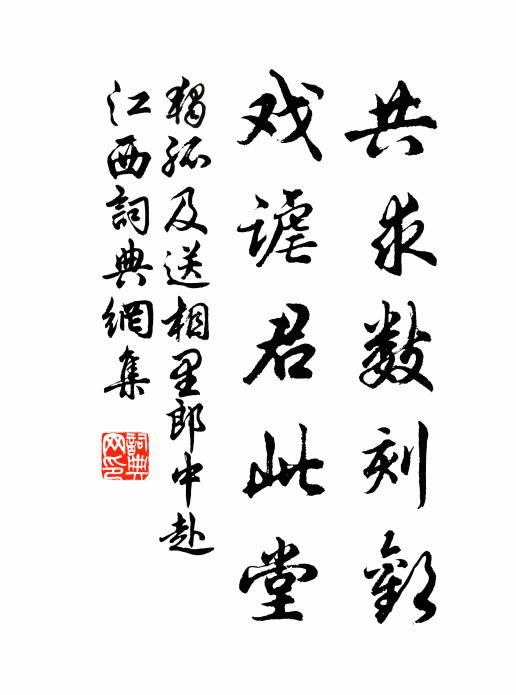 共求數刻歡
戏謔君此堂
獨孤及送相里郎中赴
江西詞典網集
詞典网印